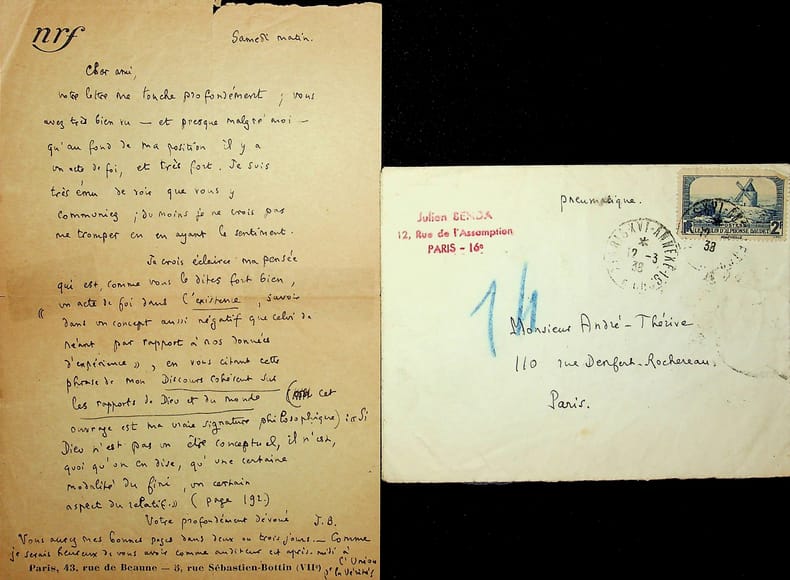 nrf
Samedi matin.
Cher ami,
votre lettre me touche profondément ; vous
avez très bien vu — et presque malgré moi —
qu'au fond de ma position il y a
un acte de foi, et très fort. Je suis
très ému de voir que vous y
communiez ; du moins je ne crois pas
me tromper en en ayant le sentiment.
Je crois éclairer ma pensée
qui est, comme vous le dites fort bien,
un acte de foi dans l'existence, savoir
« dans un concept aussi négatif que celui de
néant par rapport à nos données
d'expérience », en vous citant cette
phrase de mon Discours cohérent sur
les rapports de Dieu et du monde ( cet
ouvrage est ma vraie signature philosophique) : « Si
Dieu n'est pas un être conceptuel, il n'est,
quoi qu'on en dise, qu'une certaine
modalité du fini, un certain
aspect du relatif. » ( page 192.)
Votre profondément dévoué J. B.
Vous aurez mes bonnes pages dans deux ou trois jours. — Comme
je serais heureux de vous avoir comme auditeur cet après-midi à
l'Union
pr la Vérité !
Paris, 43, rue de Beaune — 5, rue Sébastien-Bottin (VIIe)
pneumatique.
Julien BENDA
12, Rue de l'Assomption
PARIS - 16e
XVI ANNEXE
12 -3
38
POSTES
LE MOULIN D'ALPHONSE DAUDET
2F
14
Monsieur André-Thérive
110 rue Denfert-Rochereau.
Paris.